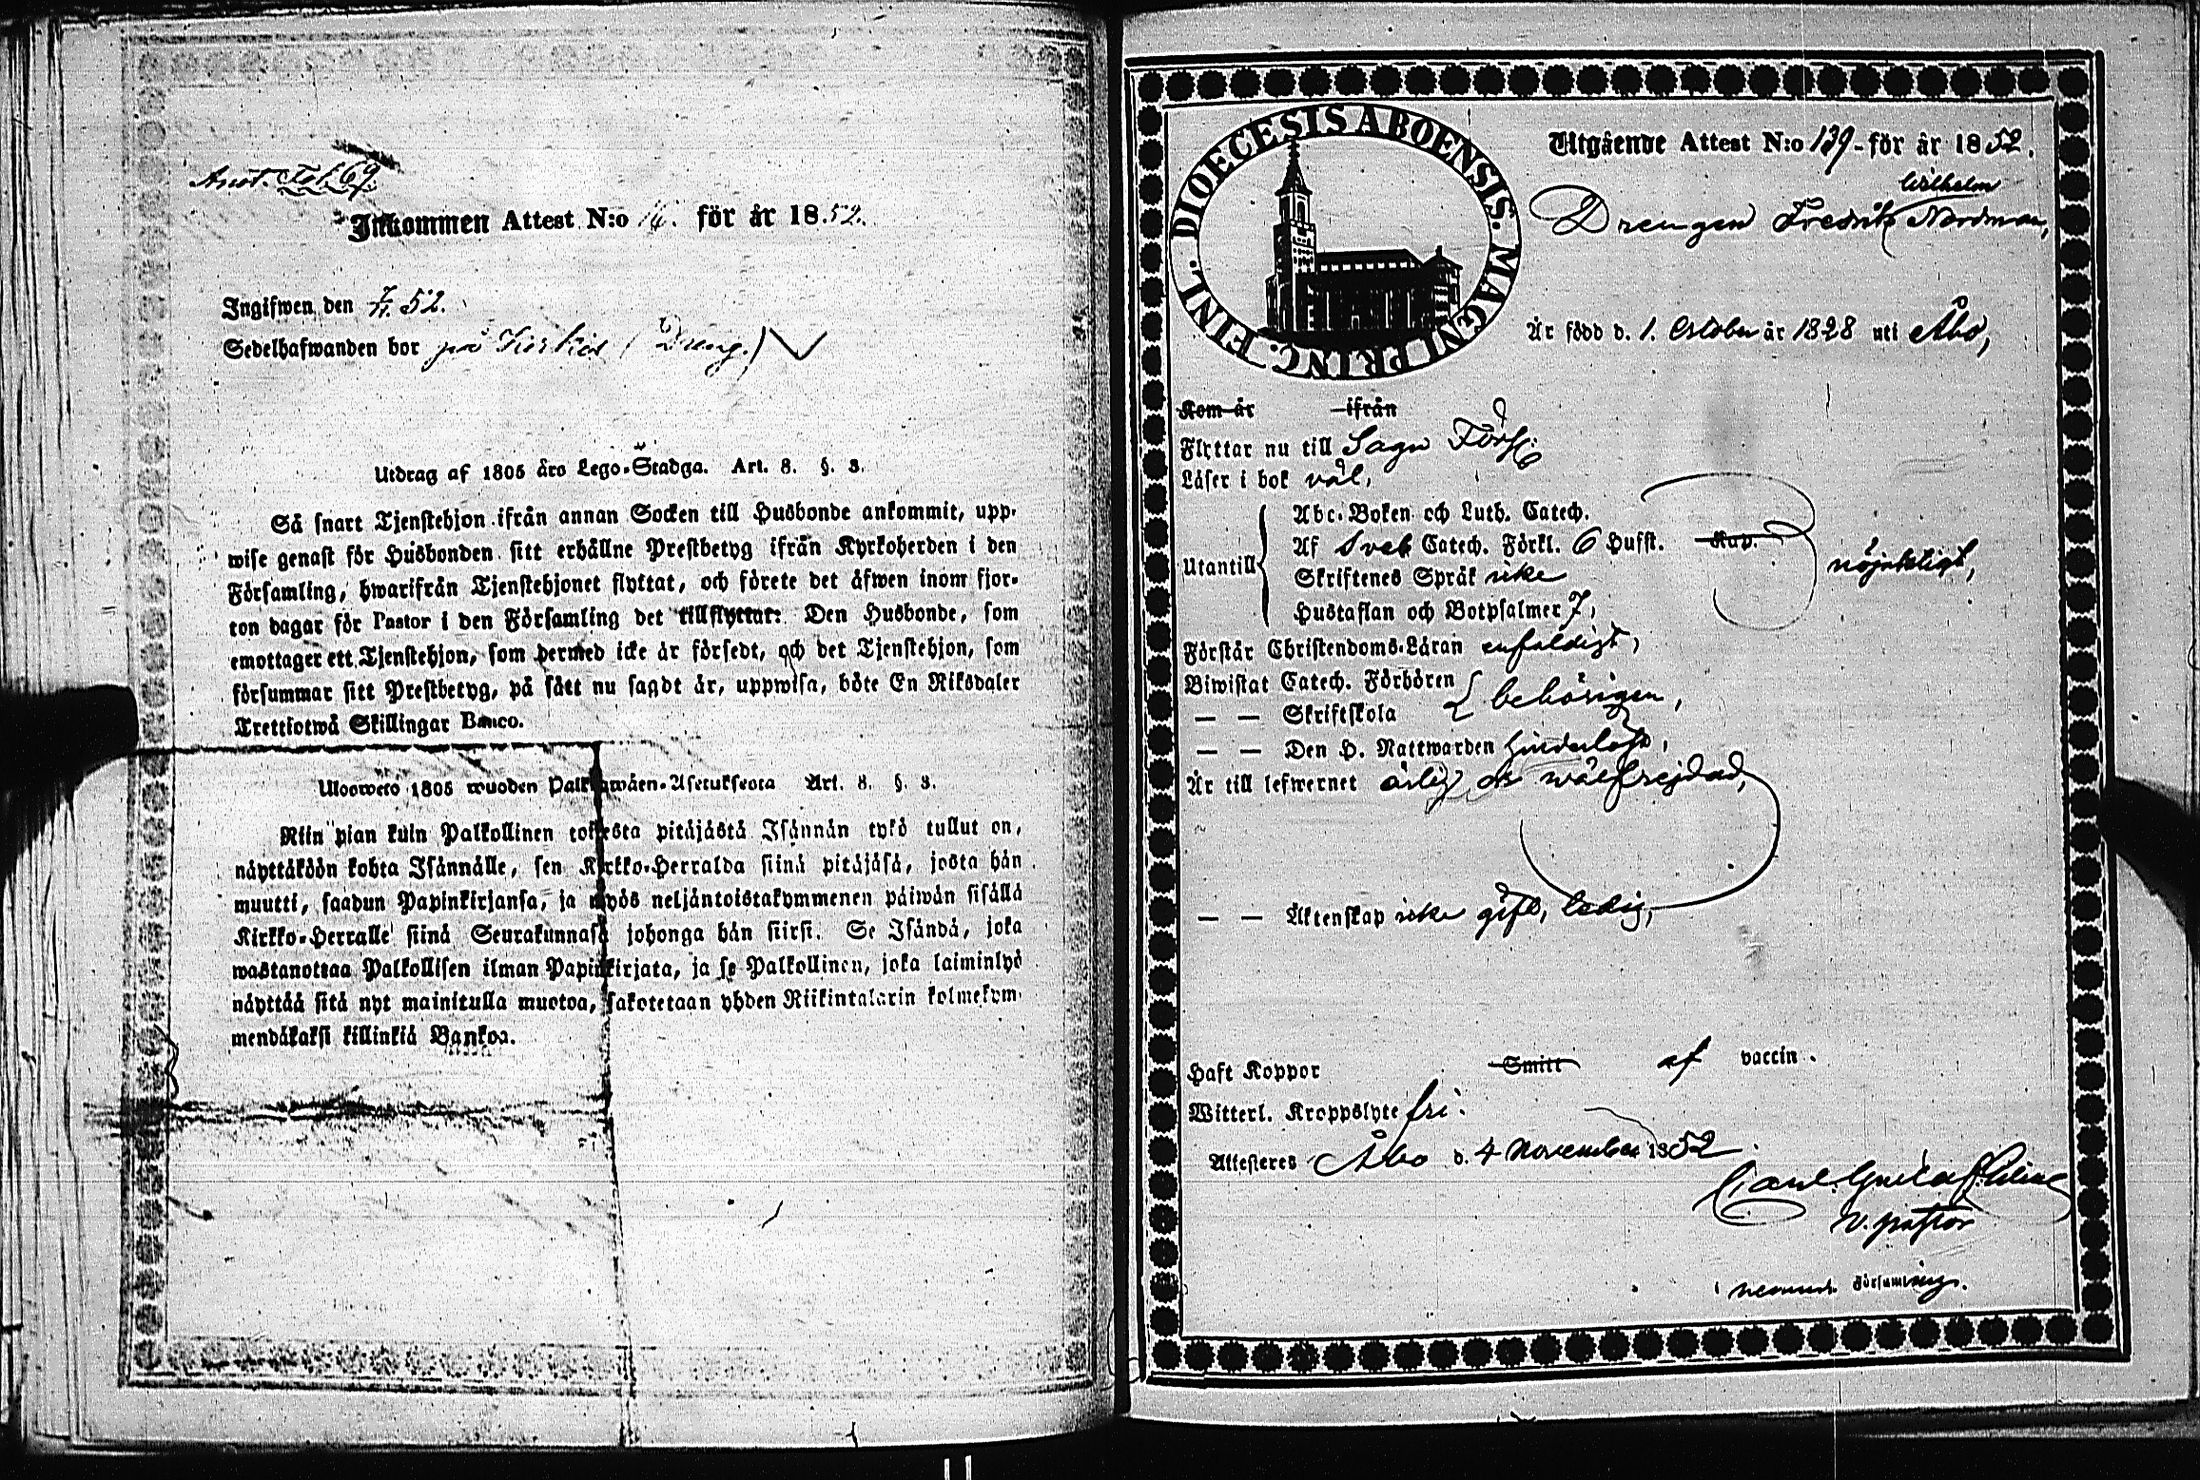 Anot. Fol. 69.
Inkommen Attest N:o 16. för år 1852.
Ingifwen den 7/11 52.
Sedelhafwanden bor på Kirkis (Dreng.)
Utdrag af 1805 års Lego-Stadga. Art. 8. §. 3.
Så snart Tjenstehjon ifrån annan Socken till Husbonde ankommit, upp-
wise genast för Husbonden sitt erhållne Prestbetyg ifrån Kyrkoherden i den
Församling, hwarifrån Tjenstehjonet flyttat, och förete det åfwen inom fjor-
ton dagar för Pastor i den Församling det tillflyttat: Den Husbonde, som
emottager ett Tjenstehjon, som dermed icke är försedt, och det Tjenstehjon, som
försummar sitt Prestbetyg, på sätt nu sagdt är, uppwisa, böte En Riksdaler
Trettiotwå Skillingar Banco.
Ulosweto 1805 wuoden Palkkawäen-Asetuksesta Art. 8. §. 3.
Niin pian kuin Palkollinen toisesta pitäjästä Isännän tykö tullut on,
näyttäköön kohta Isännälle, sen Kirkko-Herralda siinä pitäjäsä, josta hän
muutti, saadun Papinkirjansa, ja myös neljäntoistakymmenen päiwän sisällä
Kirkko-Herralle siinä Seurakunnasa johonga hän siirsi. Se Isändä, joka
wastanottaa Palkollisen ilman Papinkirjata, ja se Palkollinen, joka laiminlyö
näyttää sitä nyt mainitulla muotoa, sakotetaan yhden Riikintalarin kolmekym-
mendäkaksi killinkiä Bankoa.
DIOECESIS ABOENSIS. MAGNI PRINC. FINL.
Utgående Attest N:o 139 för år 1852.
Wilhelm
Drengen Fredrik Nordman,
Är född d. 1. October år 1828 uti Åbo,
Kom år ifrån
Flyttar nu till Sagu Förs:
Läser i bok väl,
Abc-Boken och Luth. Catech.
Af Sveb Catech. Förkl. 6 Hufst. Kap.
Utantill nöjaktigt,
Skriftenes Språk icke
Hustaflan och Botpsalmer 7,
Förstår Christendoms-Läran enfaldigt,
Biwistat Catech. Förhören
— — Skriftskola behörigen,
— — Den H. Nattwarden hinderlöst,
Är till lefwernet ärlig och wälfrejdad,
— — Äktenskap icke gift, ledig,
Haft Koppor Smitt af vaccin.
Witterl. Kroppslyte fri.
Attesteras Åbo d. 4 November 1852
Carl Gustaf
V. pastor
i nemnd. Församling.